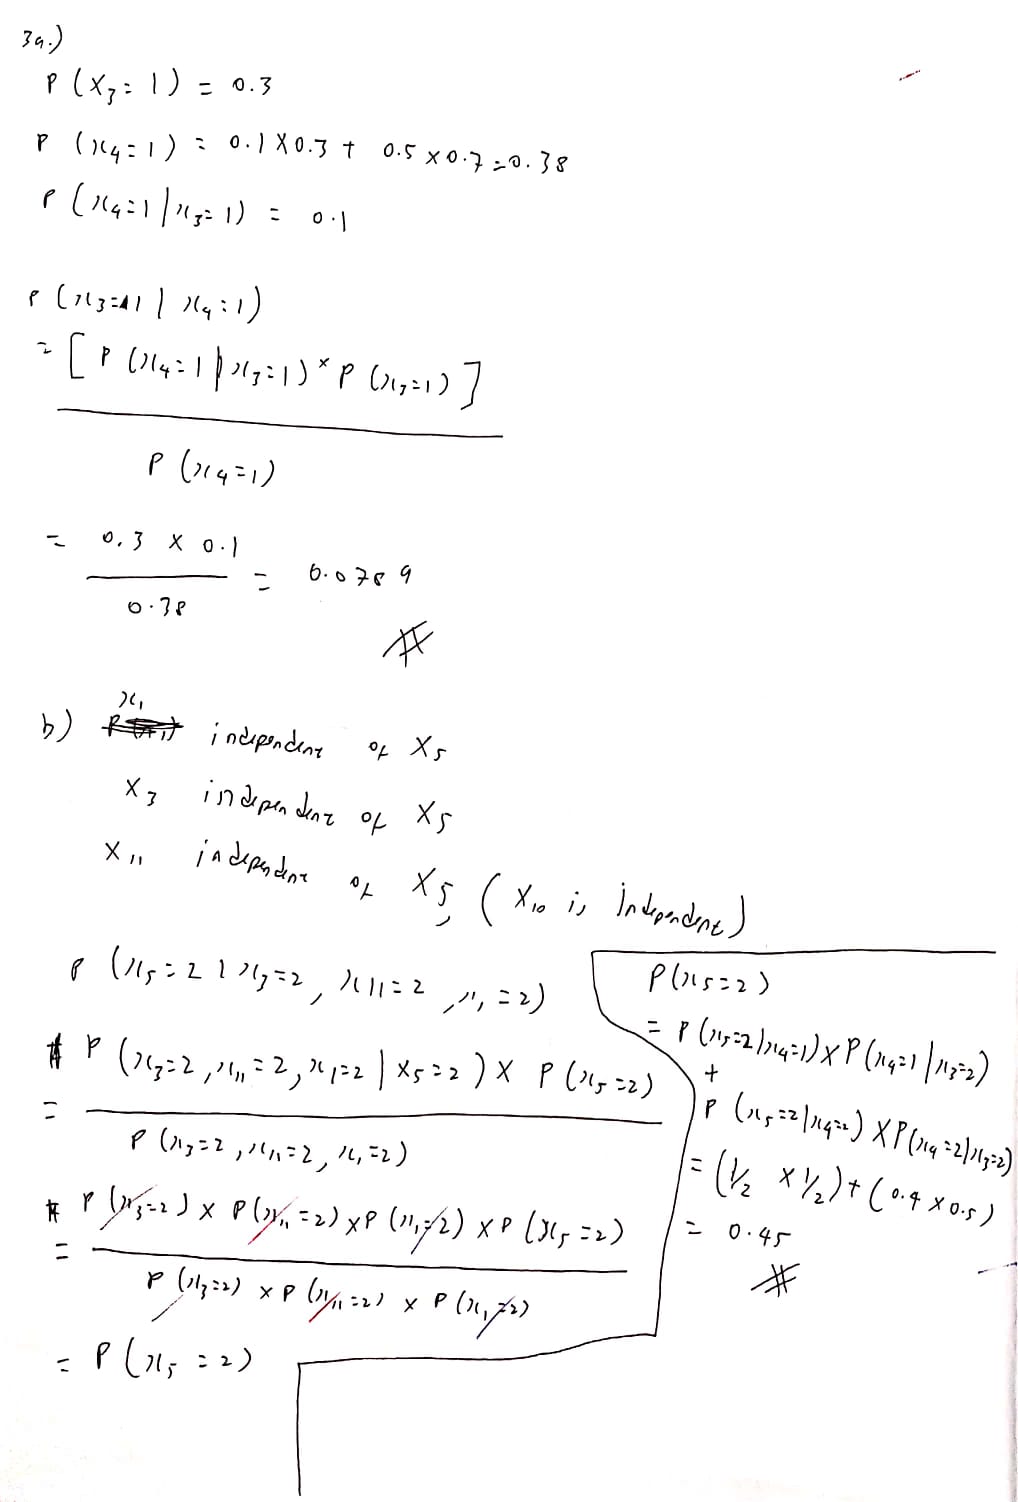 3a.)
P (X3 = 1) = 0.3
P (x4 = 1) = 0.1 X 0.3 + 0.5 x 0.7 = 0.38
P (x4=1 | x3=1) = 0.1
P (x3=1 | x4=1)
= [ P (x4=1 | x3=1) * P (x3=1) ]
P (x4=1)
= 0.3 X 0.1
0.38
= 0.0789
#
b) x1 independent of X5
X3 independent of X5
X11 independent of X5 ( X10 is independent)
P (x5=2 | x3=2, x11=2, x1=2)
= P (x3=2, x11=2, x1=2 | X5=2) X P (x5=2)
P (x3=2, x11=2, x1=2)
= P (x3=2) x P (x11=2) x P (x1=2) x P (x5=2)
P (x3=2) x P (x11=2) x P (x1=2)
= P (x5 = 2)
P(x5=2)
= P (x5=2|x4=1) x P (x4=1 | x3=2)
+
P (x5=2|x4=2) X P(x4=2|x3=2)
= (1/2 x 1/2) + (0.4 x 0.5)
= 0.45
#